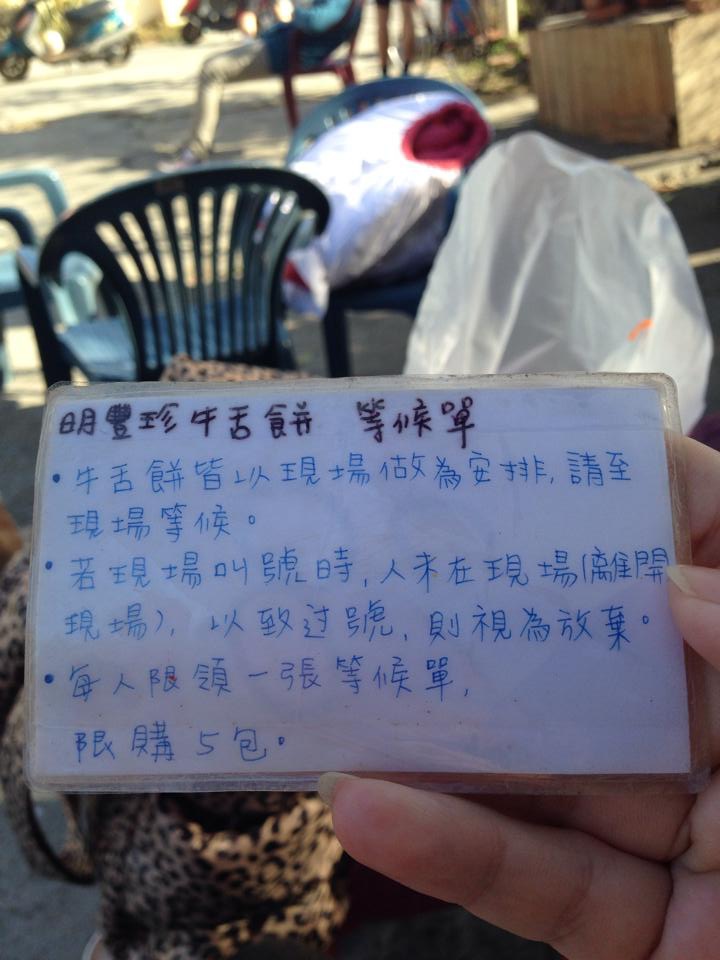 明豐珍牛舌餅 等候單
•牛舌餅皆以現場做為安排,請至
現場等候。
•若現場叫號時,人未在現場(離開
現場),以致过號,則視為放棄。
•每人限領一張等候單,
限購5包。